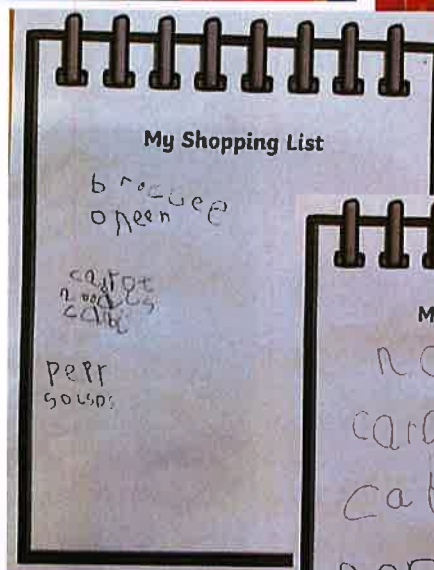 My Shopping List
brocuee
oneen
carot
noodls
cab
pepr
M
no
caro
cab